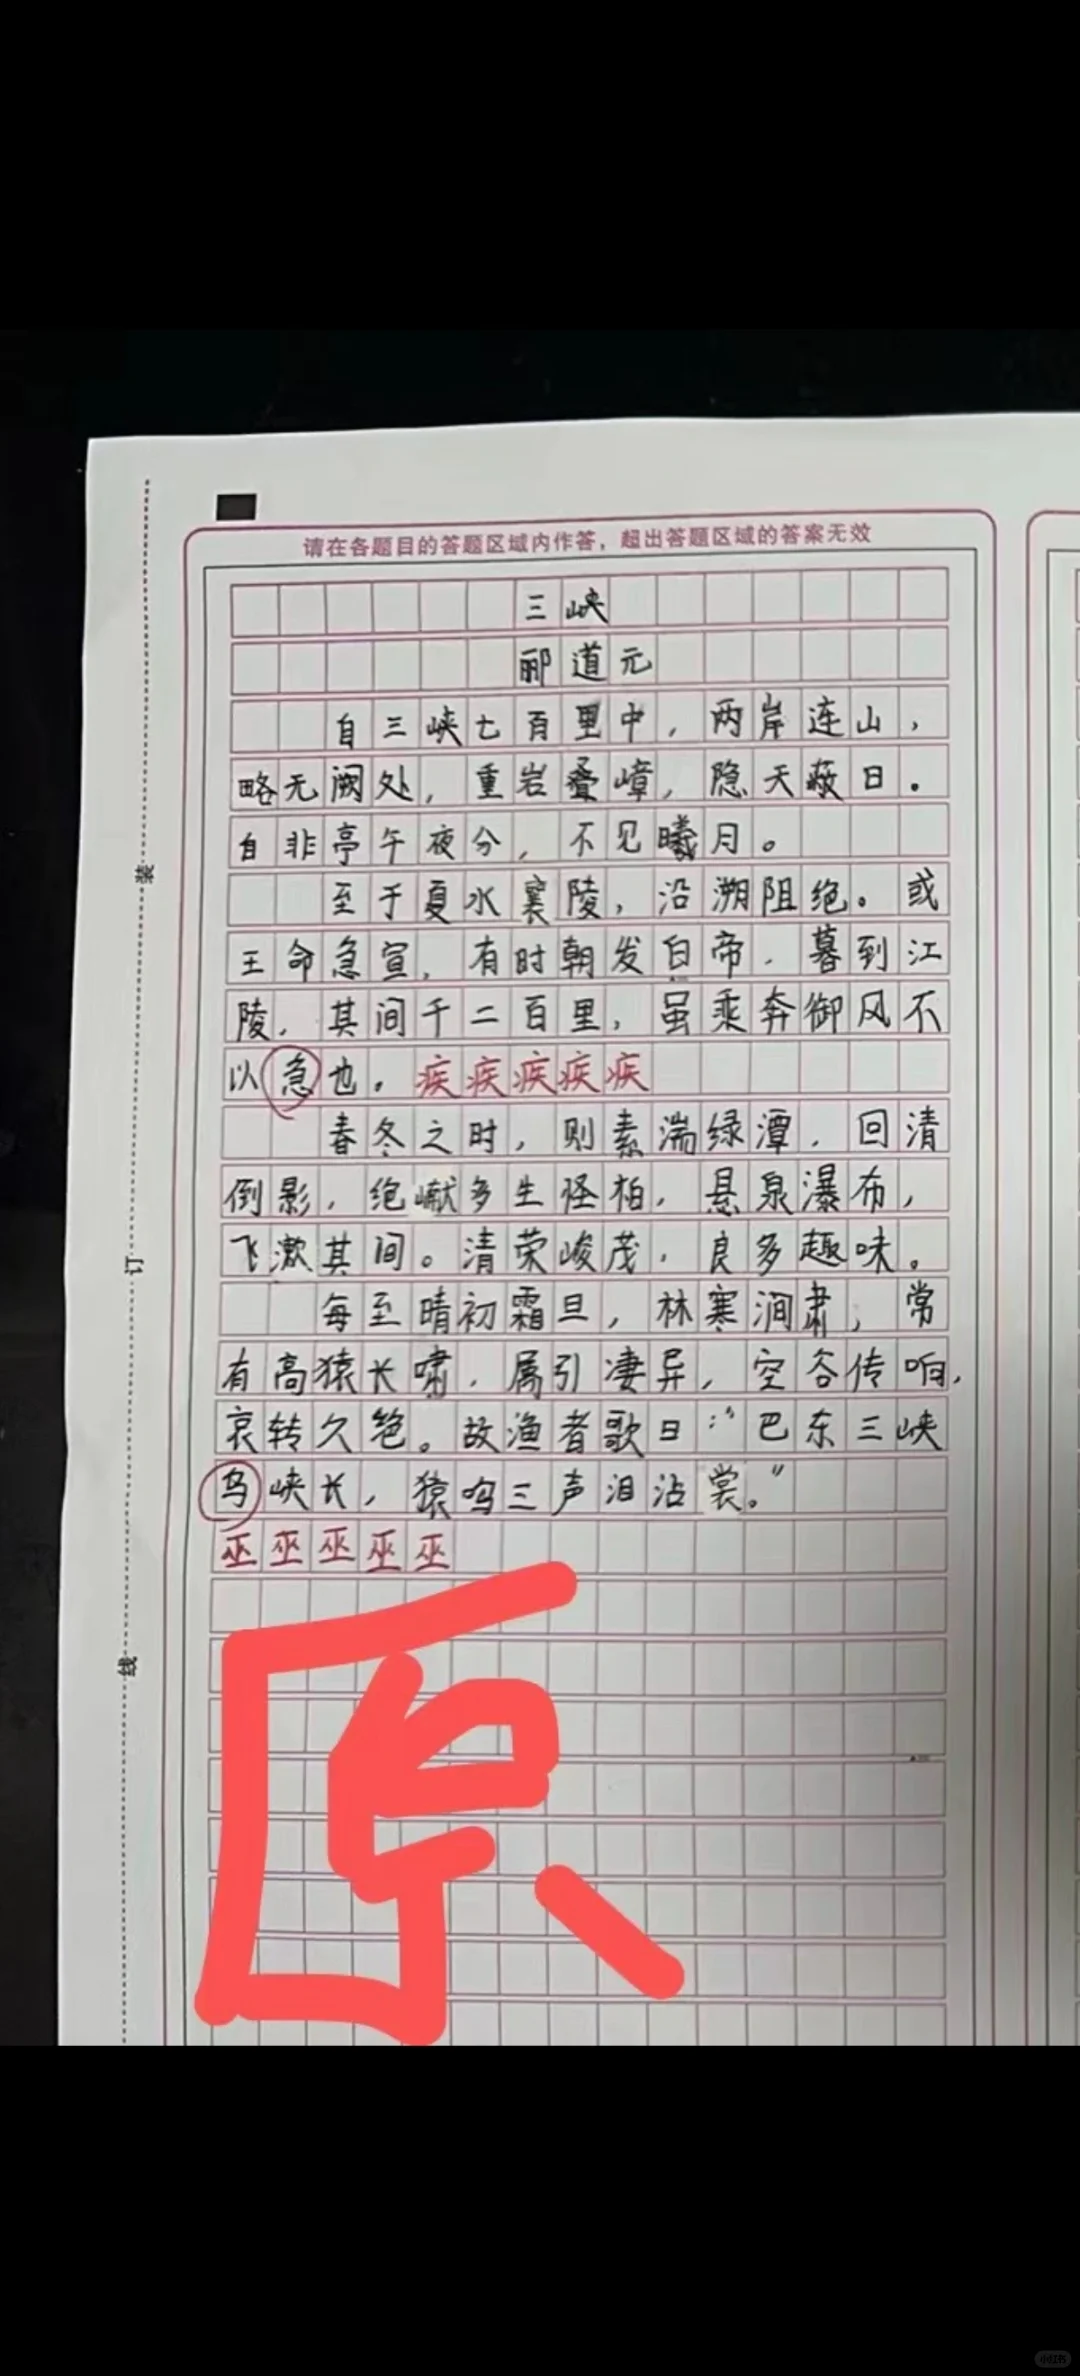 请在各题目的答题区域内作答，超出答题区域的答案无效
三峡
郦道元
自三峡七百里中，两岸连山，
略无阙处，重岩叠嶂，隐天蔽日。
自非亭午夜分，不见曦月。
至于夏水襄陵，沿溯阻绝。或
王命急宣，有时朝发白帝，暮到江
陵，其间千二百里，虽乘奔御风不
以急也。疾疾疾疾疾
春冬之时，则素湍绿潭，回清
倒影，绝巘多生怪柏，悬泉瀑布，
飞漱其间。清荣峻茂，良多趣味。
每至晴初霜旦，林寒涧肃，常
有高猿长啸，属引凄异，空谷传响，
哀转久绝。故渔者歌曰：“巴东三峡
乌峡长，猿鸣三声泪沾裳。”
巫巫巫巫巫
原
装
订
线
小红书